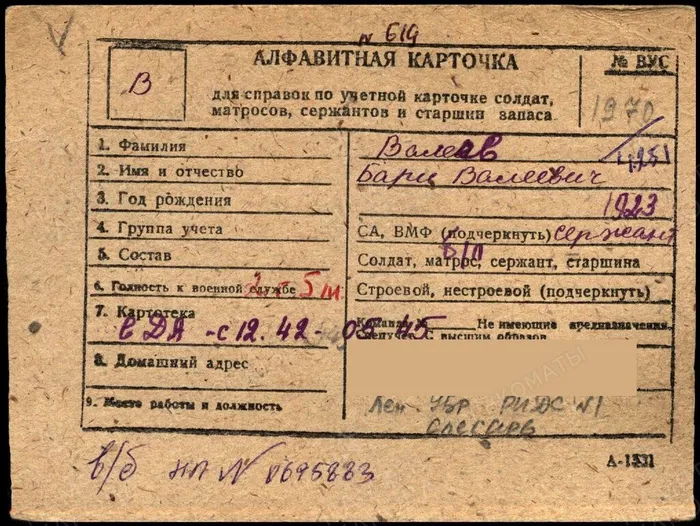 N 619
АЛФАВИТНАЯ КАРТОЧКА
№ ВУС
В
для справок по учетной карточке солдат,
матросов, сержантов и старшин запаса
1970
4251
1. Фамилия Валеев
2. Имя и отчество Барц Валеевич
3. Год рождения 1923
4. Группа учета СА, ВМФ (подчеркнуть) сержант
б/п
5. Состав Солдат, матрос, сержант, старшина
6. Годность к военной службе Строевой, нестроевой (подчеркнуть)
7. Картотека Не имеющие предназначения
в ДА - с 12. 42 - 05 45
С высшим образов.
8. Домашний адрес
9. Место работы и должность Лен. УБР №1
слесарь
в/б НЛ N 0695883
А-1531